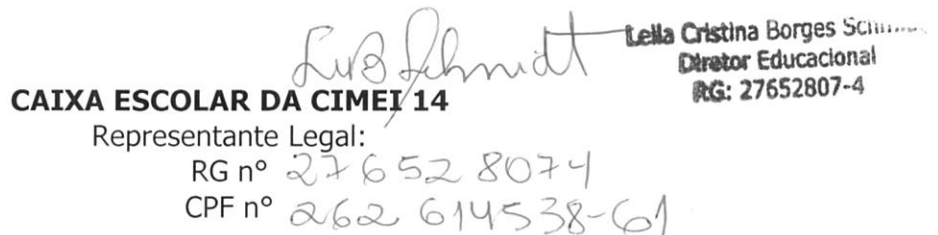 LCB Schmidt
Leila Cristina Borges
Diretor Educacional
RG: 27652807-4
CAIXA ESCOLAR DA CIMEI 14
Representante Legal:
RG nº 276528074
CPF nº 262 614538-61